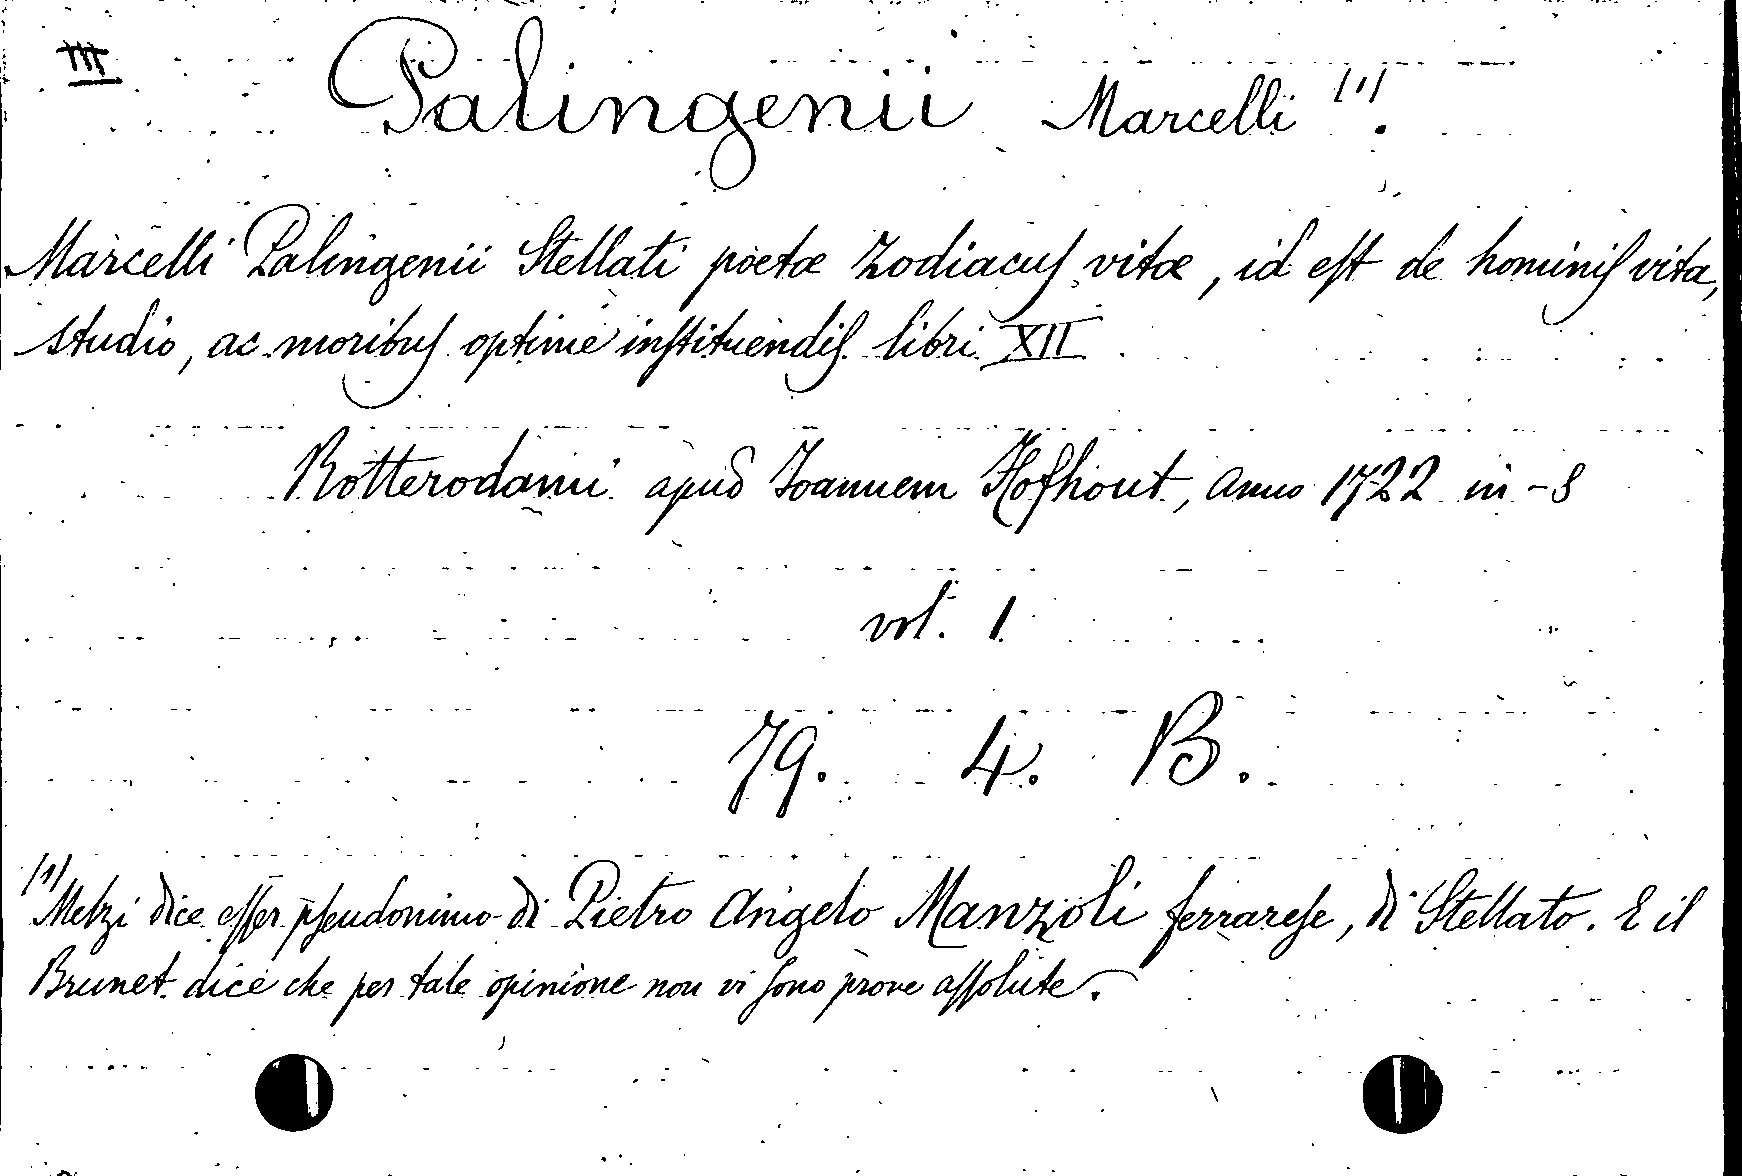 III
Palingenii Marcelli (1).
Marcelli Palingenii Stellati poetæ Zodiacus vitæ, id est de hominis vita,
studio, ac moribus optime instituendis libri XII
Rotterodami apud Ioannem Hofhout, anno 1722 in-8
vol. 1
79. 4. B.
(1) Melzi dice esser pseudonimo di Pietro Angelo Manzoli ferrarese, di Stellato. E il
Brunet dice che per tale opinione non vi sono prove assolute.